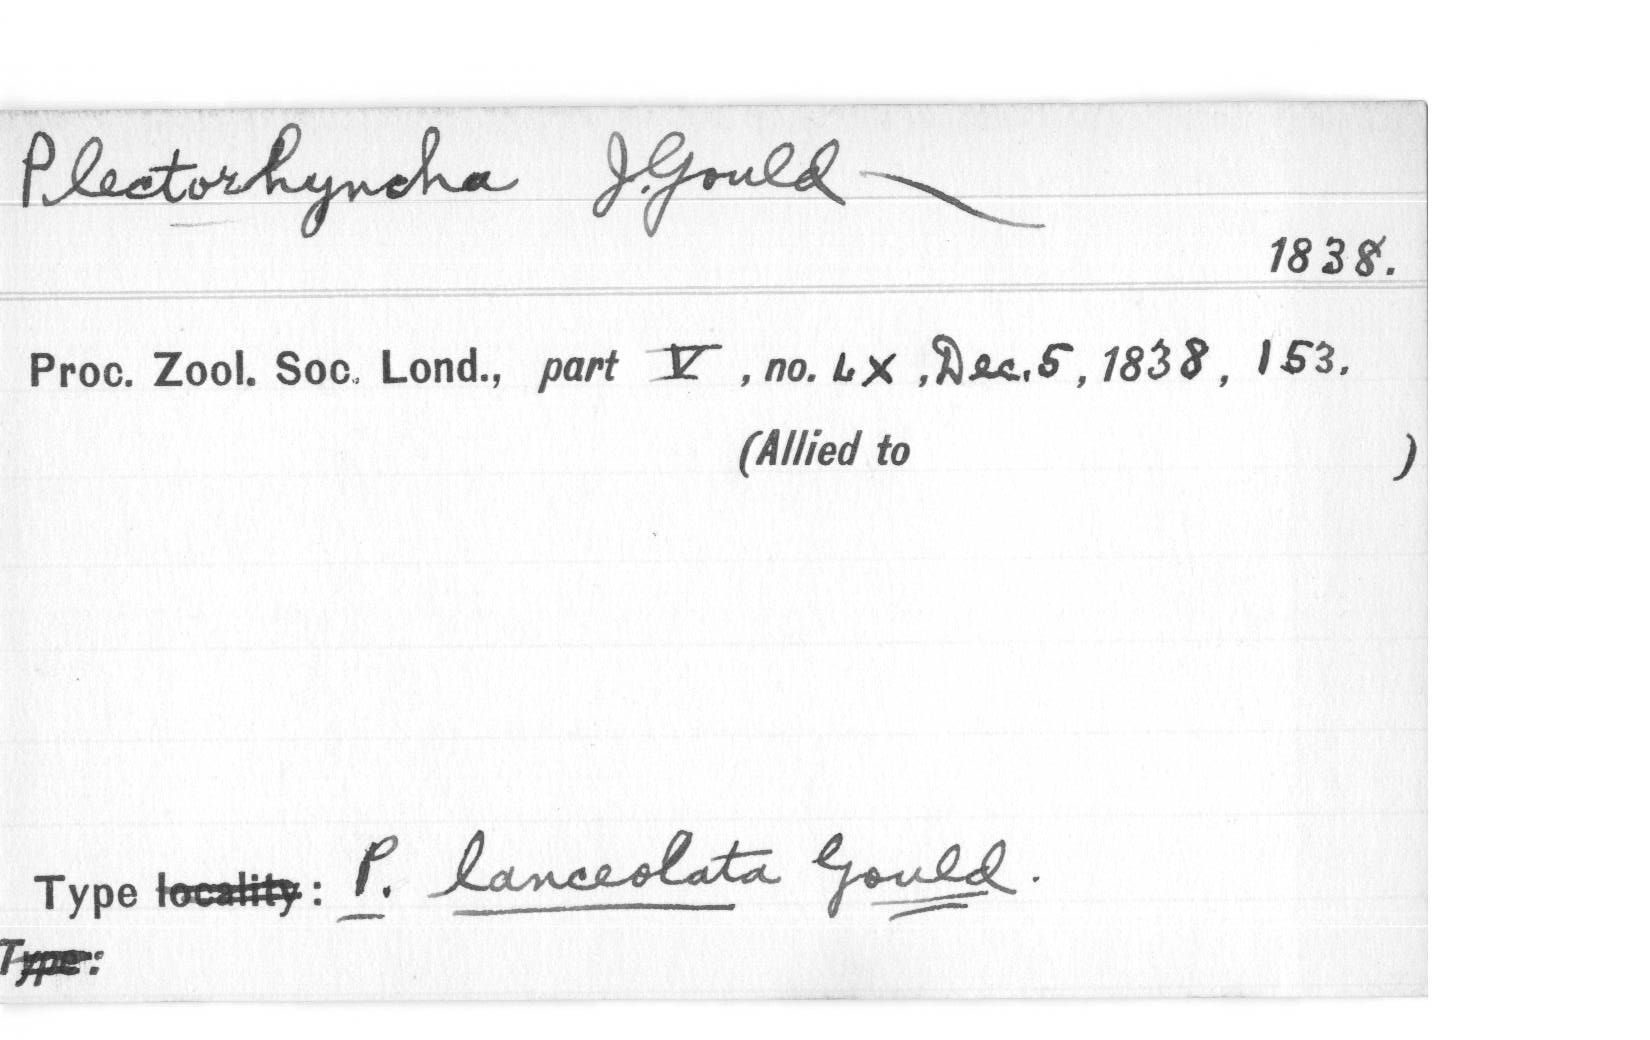 Plectorhyncha J. Gould
1838.
Proc. Zool. Soc. Lond., part V, no. LX, Dec. 5, 1838, 153.
(Allied to )
Type locality: P. lanceolata Gould.
Type: